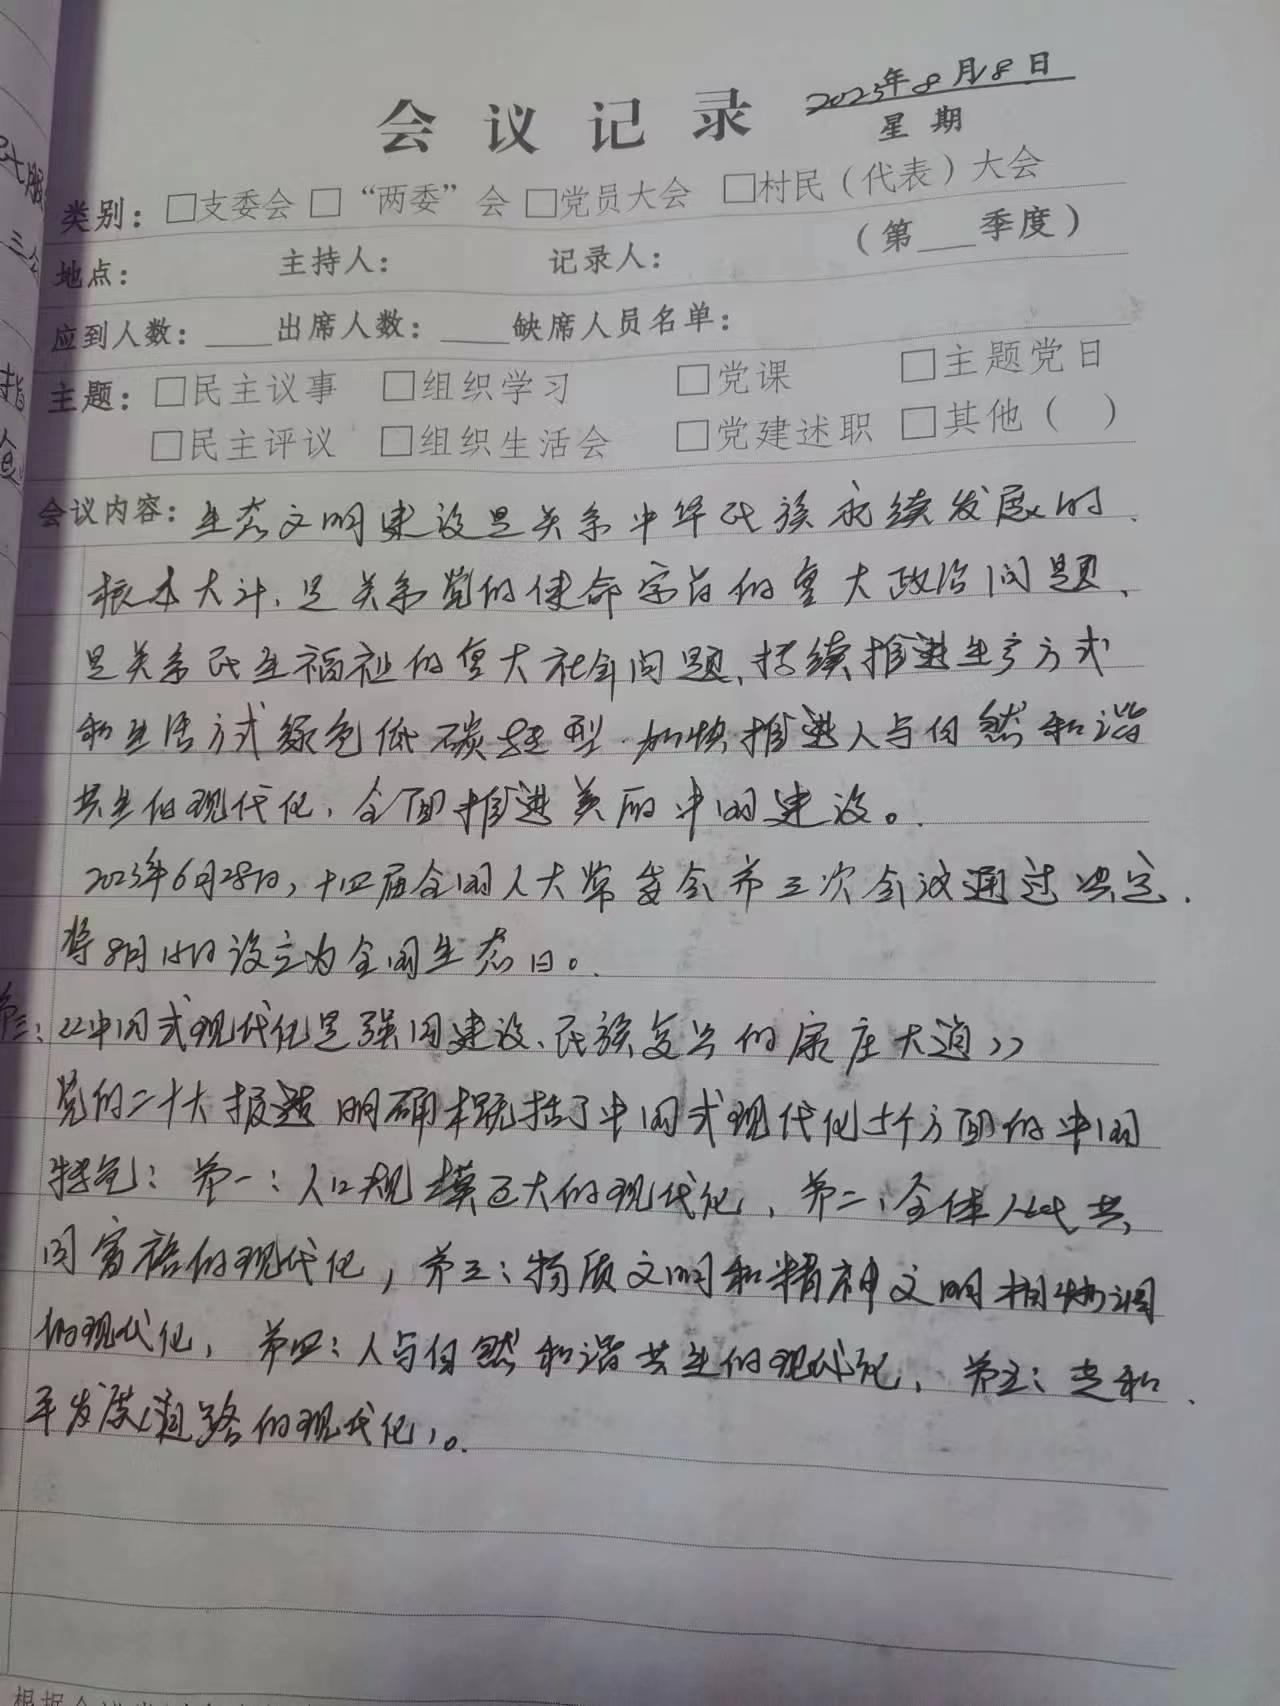 会议记录
2023年8月18日
星期
类别：□支委会 □“两委”会 □党员大会 □村民（代表）大会
地点： 主持人： 记录人： （第___季度）
应到人数：____出席人数：____缺席人员名单：
主题：□民主议事 □组织学习 □党课 □主题党日
□民主评议 □组织生活会 □党建述职 □其他（ ）
会议内容：生态文明建设是关系中华民族永续发展的
根本大计、是关系党的使命宗旨的重大政治问题、
是关系民生福祉的重大社会问题、持续推进生产方式
和生活方式绿色低碳转型，加快推进人与自然和谐
共生的现代化，全面推进美丽中国建设。
2023年6月28日，十四届全国人大常委会第三次会议通过决定.
将8月15日设立为全国生态日。
第三：《中国式现代化是强国建设、民族复兴的康庄大道》
党的二十大报告 明确概括了中国式现代化5个方面的中国
特色：第一：人口规模巨大的现代化，第二：全体人民共
同富裕的现代化，第三：物质文明和精神文明相协调
的现代化，第四：人与自然和谐共生的现代化，第五：走和
平发展道路的现代化，。